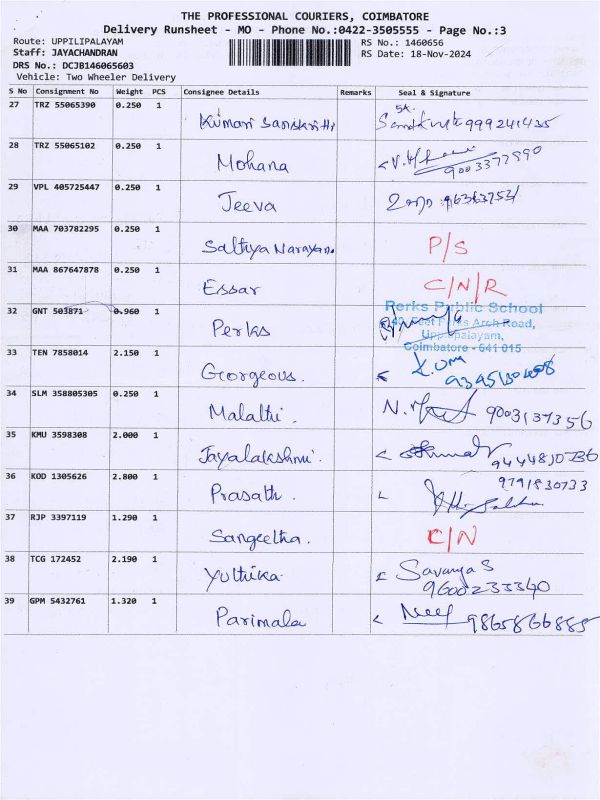 THE PROFESSIONAL COURIERS, COIMBATORE
Delivery Runsheet - MO - Phone No.:0422-3505555 - Page No.:3
Route: UPPILIPALAYAM
Staff: JAYACHANDRAN
DRS No.: DCJB146065603
Vehicle: Two Wheeler Delivery
RS No.: 1460656
RS Date: 18-Nov-2024
S No Consignment No Weight PCS Consignee Details Remarks Seal & Signature
27 TRZ 55065390 0.250 1 Kumari Sanskrithi
28 TRZ 55065102 0.250 1 Mohana
29 VPL 405725447 0.250 1 Jeeva
30 MAA 703782295 0.250 1 Sathya Narayan. P/S
31 MAA 867647878 0.250 1 Essar C/N/R
32 GNT 503871 0.960 1 Perks
Perks Public School
Arch Road,
Uppilipalayam,
Coimbatore - 641 015
33 TEN 7858014 2.150 1 Georgeous. K. Uma
34 SLM 358805305 0.250 1 Malathi. 9003137356
35 KMU 3598308 2.000 1 Jayalakshmi. 9444810736
36 KOD 1305626 2.800 1 Prasath. 9791830733
37 RJP 3397119 1.290 1 Sangeetha. C/N
38 TCG 172452 2.190 1 Yuthika Saranya S
9600233340
39 GPM 5432761 1.320 1 Parimala 9865866885